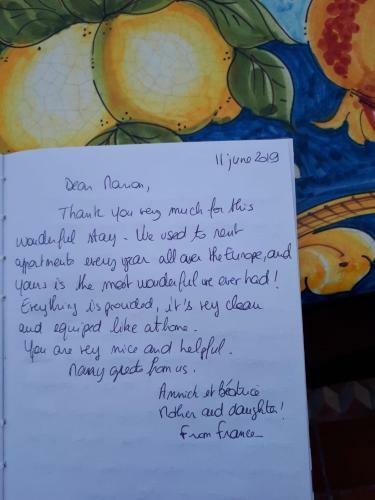 11 june 2019
Dear Manon,
Thank you very much for this
wonderful stay. We used to rent
apartments every year all over the Europe, and
yours is the most wonderful we ever had!
Everything is provided, it's very clean
and equiped like at home.
You are very nice and helpful.
Many greets from us.
Annick et Béatrice
Mother and daughter!
From France